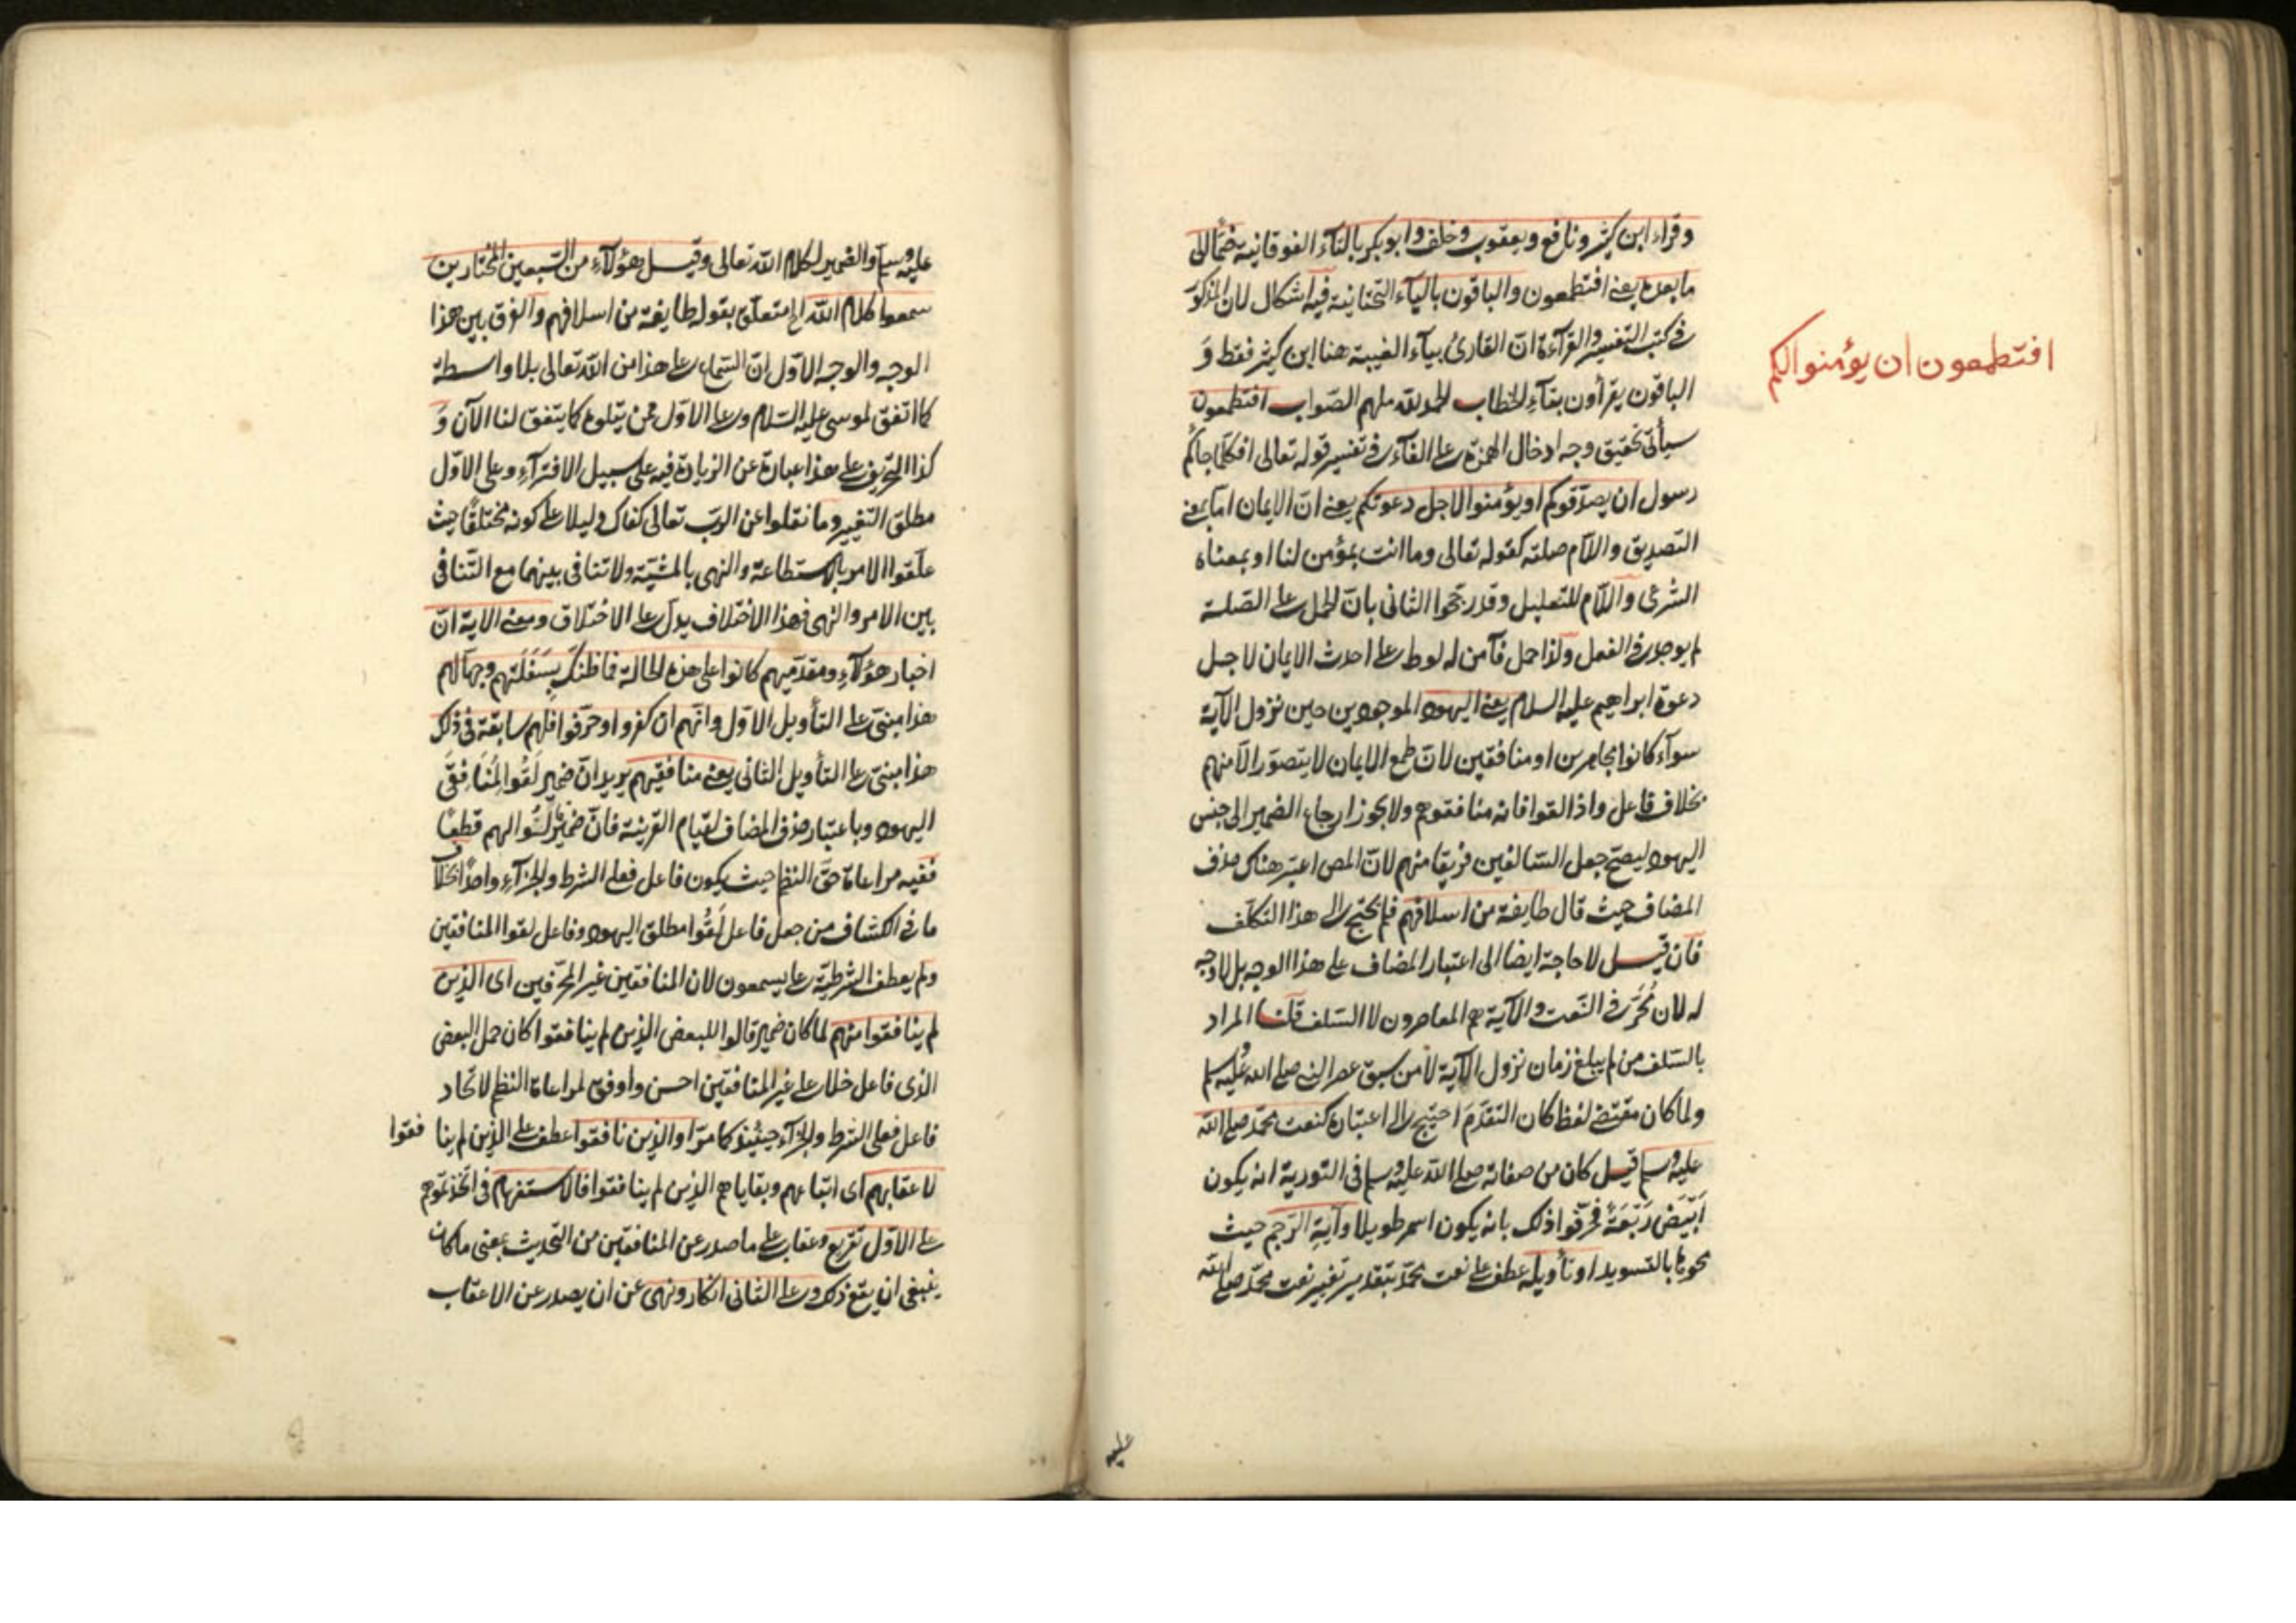 وقراء ابن كثير ونافع ويعقوب وخلف وابو بكر بالتآء الفوقانية ضمّا الى
ما بعده يعنى افتطمعون والباقون باليآء التحتانية فيه اشكال لان المذكور
فى كتب التفسير والقرآءة انّ القارئ بيآء الغيبة هنا ابن كثير فقط وَ
الباقون يقرأون بتآء الخطاب الحمد لله ملهم الصّواب افتطمعون
سيأتى تحقيق وجه ادخال الهمزة على الفآء فى تفسير قوله تعالى افكلّما جاكم
رسول ان يصدّقوكم او يؤمنوا لاجل دعوتكم يعنى انّ الايمان امّا بمعنى
التصديق واللام صلته كقوله تعالى وما انت بمؤمن لنا او بمعناه
الشرعى واللّام للتعليل وقد رجّحوا الثانى بانّ الحمل على الصّلة
لم يوجد فى الفعل ولذا حمل فآمن له لوط على احدث الايمان لاجل
دعوة ابراهيم عليه السلام يعنى اليهود الموجودين حين نزول الآية
سوآء كانوا مجاهرين او منافقين لانّ طمع الايمان لا يتصوّر الّا منهم
بخلاف فاعل واذا لقوا فانه منافقوهم ولا يجوز ارجاع الضمير الى جنس
اليهود ليصحّ جعل السّالفين فريقا منهم لانّ المص اعتبر هناك حذف
المضاف حيث قال طايفة من اسلافهم فلم يحتج الى هذا التكلّف
فان قيل لا حاجة ايضا الى اعتبار المضاف على هذا الوجه بل لا وجه
له لان مُحَرّفى النّعت والآية هم المعاصرون لا السّلف قلنا المراد
بالسّلف من لم يبلغ زمان نزول الآية لا من سبق عصر النبى صلى الله عليه وسلم
ولما كان مقتضى لفظ كان التقدّمَ احتيج الى اعتباره كنعت محمّد صلى الله
عليه وسلم قيل كان من صفاته صلى الله عليه وسلم فى التورية انه يكون
اَبْيَضَ رَبْعَةً فحرّفوا ذلك بانه يكون اسمر طويلا وآيةِ الرّجم حيث
محوها بالتسويد او تأويله عطف على نعت محمّد بتقدير تغيير نعت محمّد صلى الله
عليه
افتطمعون ان يؤمنوا لكم
عليه وسلم والضمير لكلام الله تعالى وقيل هؤلآء من السّبعين المختارين
سمعوا كلام الله الخ متعلّق بقوله طايفة من اسلافهم والفرق بين هذا
الوجه والوجه الاوّل انّ السّماع على هذا من الله تعالى بلا واسطة
كما اتّفق لموسى عليه السّلام وعلى الاوّل ممن يتلوه كما يتفق لنا الآن وَ
كذا التحريف على هذا عبارة عن الزيادة فيه على سبيل الافترآء وعلى الاوّل
مطلق التغيير وما نقلوا عن الربّ تعالى كفاك دليلا على كونه مختلقا حيث
علّقوا الامر بالاستطاعة والنهى بالمشيّة ولا تنافى بينهما مع التّنافى
بين الامر والنهى فهذا الاختلاف يدلّ على الاختلاق ومعنى الاية انّ
احبار هؤلآء ومقدّميهم كانوا على هذه الحالة فما ظنّك بِسَفَلَتهم وجهّالهم
هذا مبنىّ على التأويل الاوّل وانّهم ان كفروا وحرّفوا فلهم سابقة فى ذلك
هذا مبنىّ على التأويل الثانى يعنى منافقيهم يريد انّ ضمير لقوا لمُنَافِقى
اليهود وباعتبار حذف المضاف لقيام القرينة فانّ ضمير قالُوا لهم قطعًا
ففيه مراعاة حقّ النظم حيث يكون فاعل فعلى الشرط والجزآء واحدًا بخلاف
ما فى الكشاف من جعل فاعل لَقُوا مطلق اليهود وفاعل لقوا المنافقين
ولم يعطف الشرطيّة على يسمعون لان المنافقين غير المحرّفين اى الذين
لم ينافقوا منهم لما كان ضمير قالوا للبعض الذين لم ينافقوا كان حمل البعض
الذى فاعل خلا على غير المنافقين احسن واوفق لمراعاة النظم لاتّحاد
فاعل فعلى الشرط والجزآء حينئذ كما مرّ او الذين نافقوا عطف على الذين لم ينافقوا
لاعقابهم اى اتباعهم وبقاياهم الذين لم ينافقوا فالاستفهام فى اتحدّثونهم
على الاوّل تقريع وعتاب على ما صدر عن المنافقين من التّحديث بمعنى ما كان
ينبغى ان يقع ذلك وعلى الثانى انكار ونهى عن ان يصدر عن الاعقاب